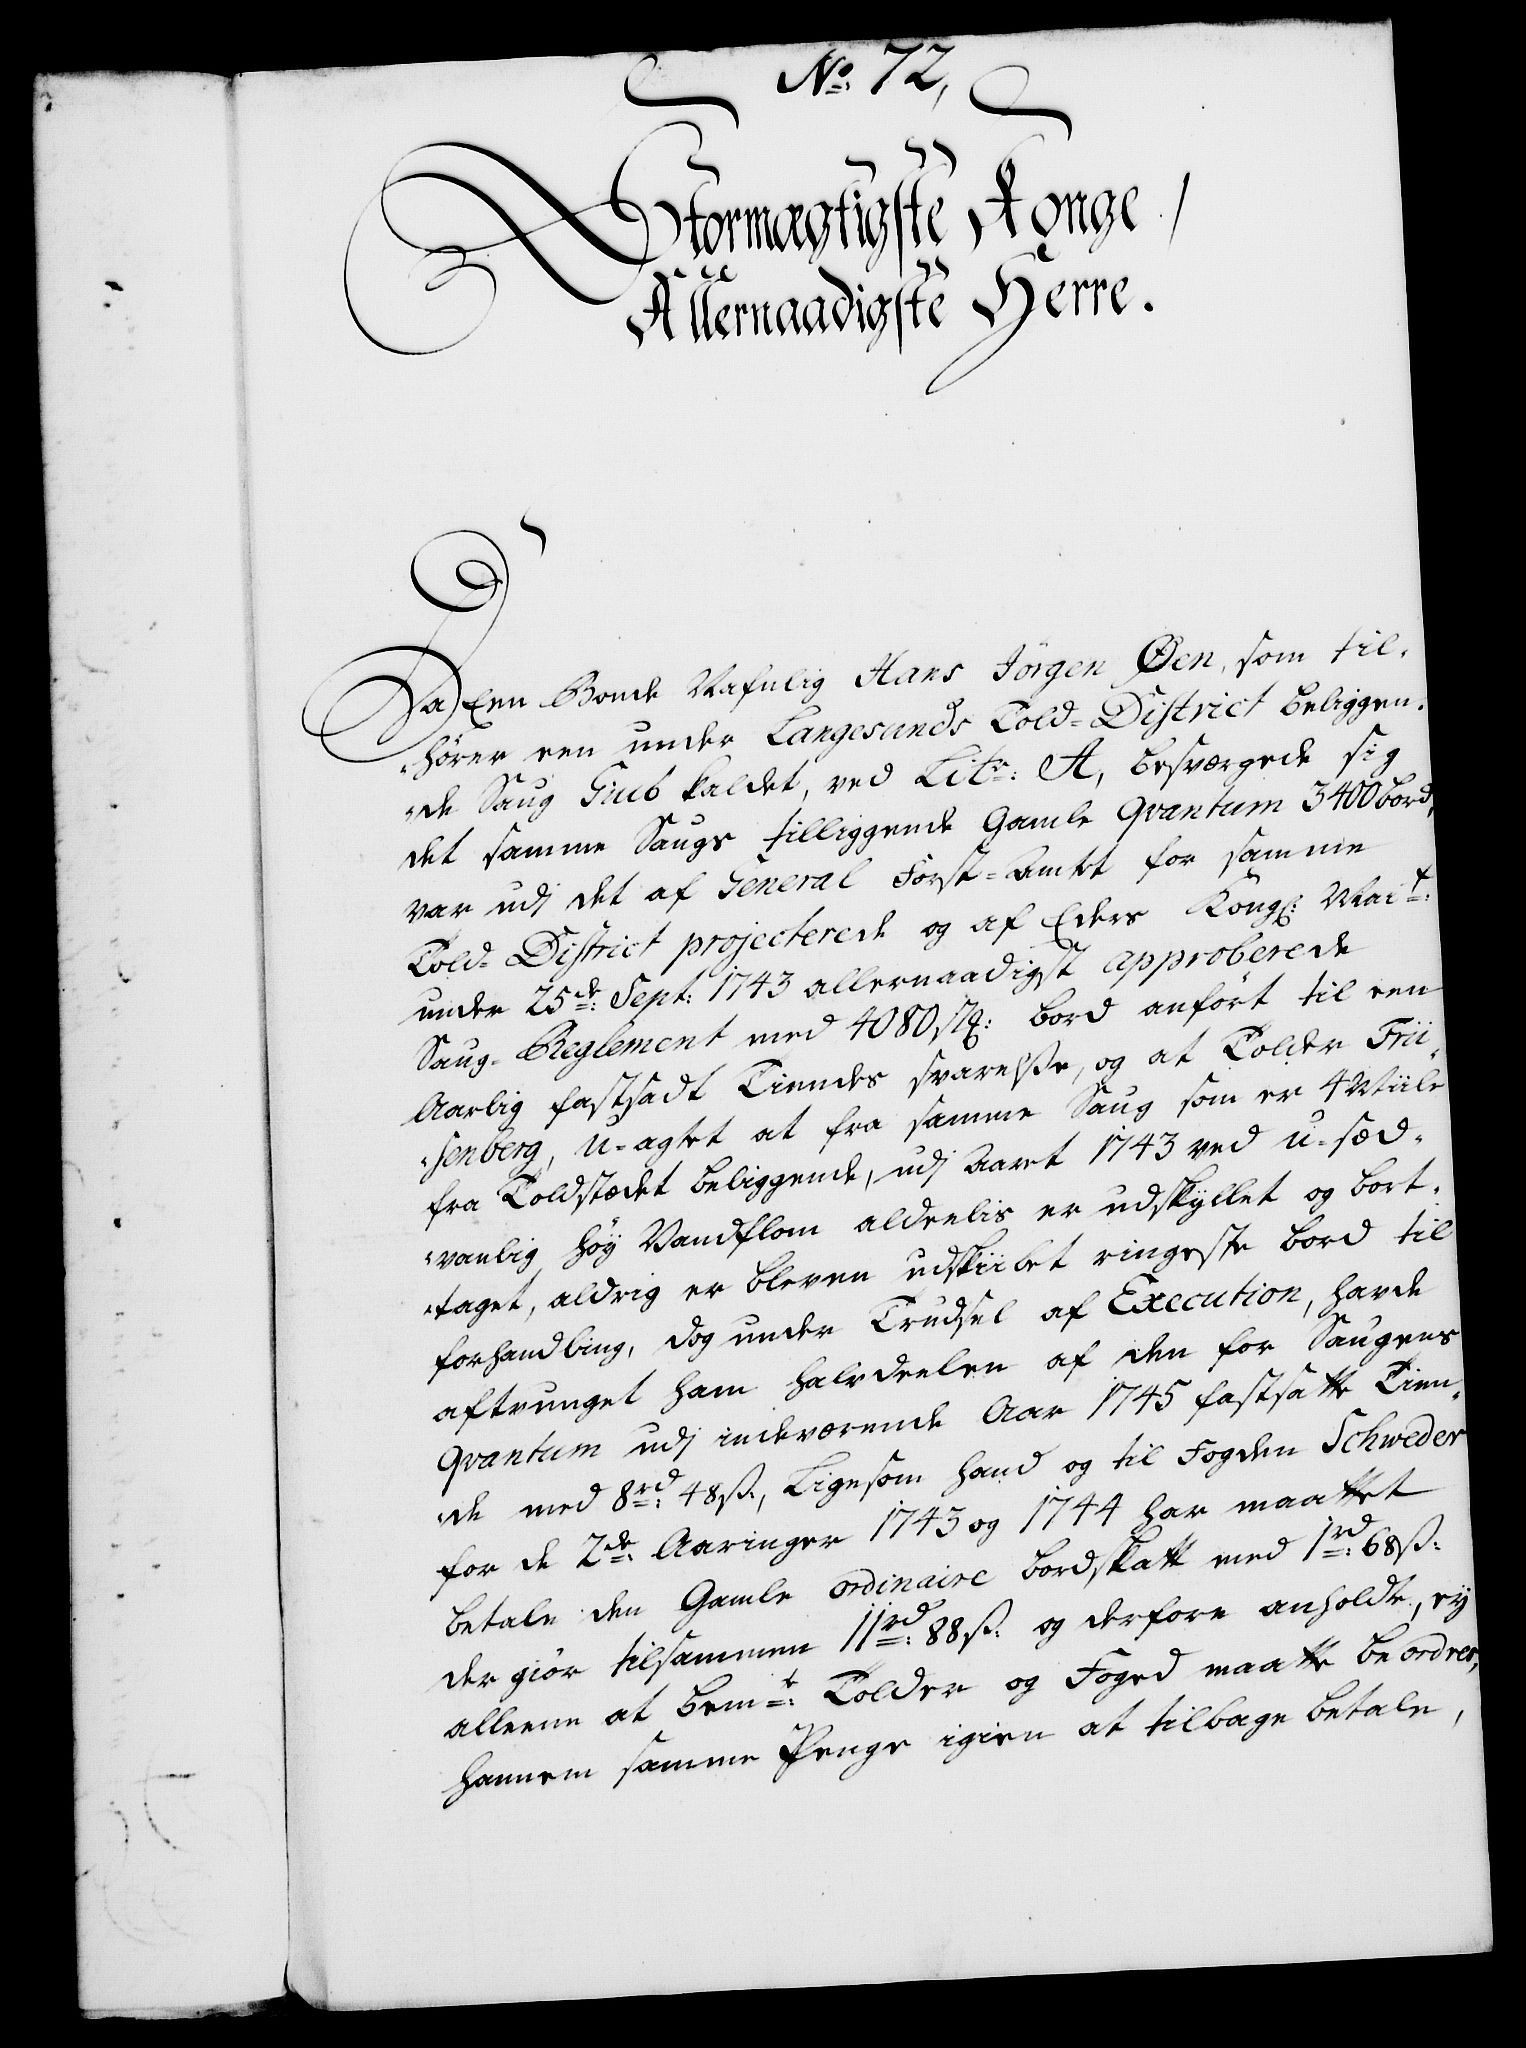 No: 72,
Stormægtigste Konge /
Allernaadigste Herre.
Da Een Bonde Nafnlig Hans Jörgen Øen, som til,
„hörer een under Langesunds Told-District beliggen,
„de Saug Gieb kaldet, ved Litr: A, besværgede sig
det samme Saugs tilliggende Gamle Qvantum 3400 bord,
var udj det af General Forst-Amtet for samme
Told-District projecterede og af Eders Kongl: Mait:
under 25de: Sept: 1743 allernaadigst approberede
Saug-Reglement med 4080 stk: bord anfört til een
Aarlig fastsadt Tiendes svarelsse, og at Tolder Frii,
„senberg, u-agtet at fra samme Saug som er 4 Miile
fra Toldstædet beliggende, udj Aaret 1743 ved u-sæd,
„vanlig höy Vandflom aldeelis er udskyllet og bort,
„taget, aldrig er bleven udskiibet ringeste bord til
forhandling, dog under Trudsel af Execution, havde
aftvunget ham halvdeelen af den for Saugens
Qvantum udj indeværende Aar 1745 fastsatte Tien,
„de med 8rd: 48ß:, Ligesom hand og til Fogden Schweder
for de 2de: Aaringer 1743 og 1744 har maattet
betale den Gamle ordinaire bordskatt med 1rd: 68ß:
der giör tilsammen 11rd: 88ß: og derfore anholdt, ey
alleene at bemte: Tolder og Foged maatte beordres,
hannem samme Penge igien at tilbage betale,